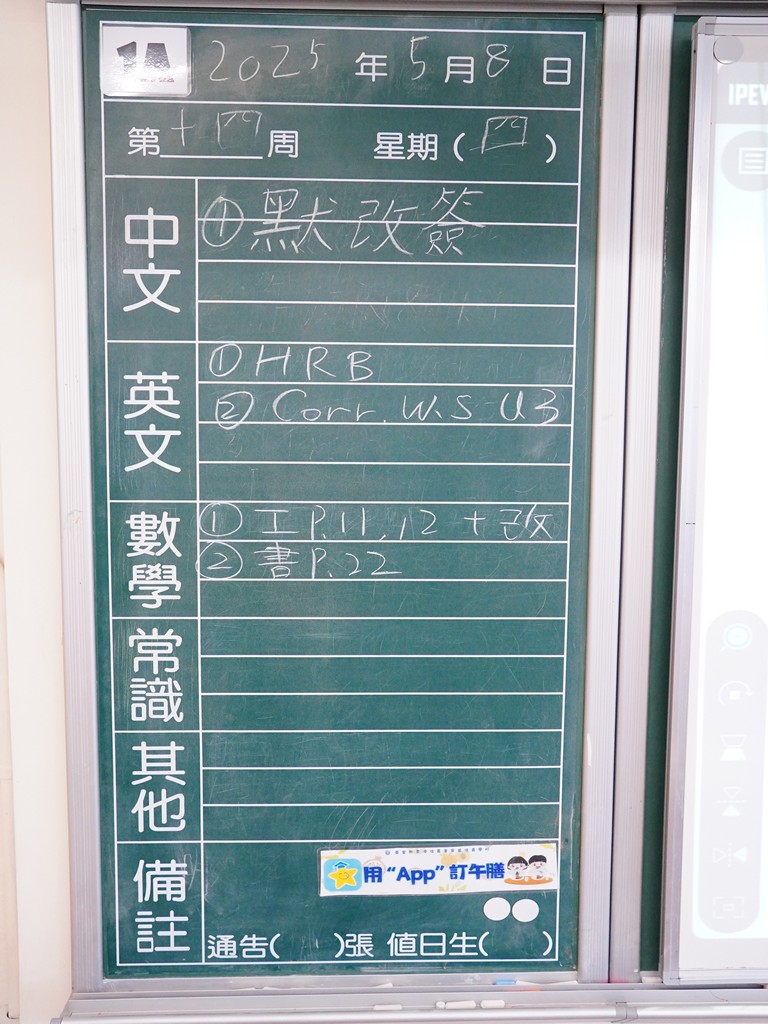 1A 2025 年 5 月 8 日
第 十四 周 星期 ( 四 )
中文
① 默改簽
英文
① HRB
② Corr. W.S U3
數學
① 工 P.11,12 + 改
② 書 P.22
常識
其他
備註
用 “App” 訂午膳
通告( )張 值日生( )
IPEV